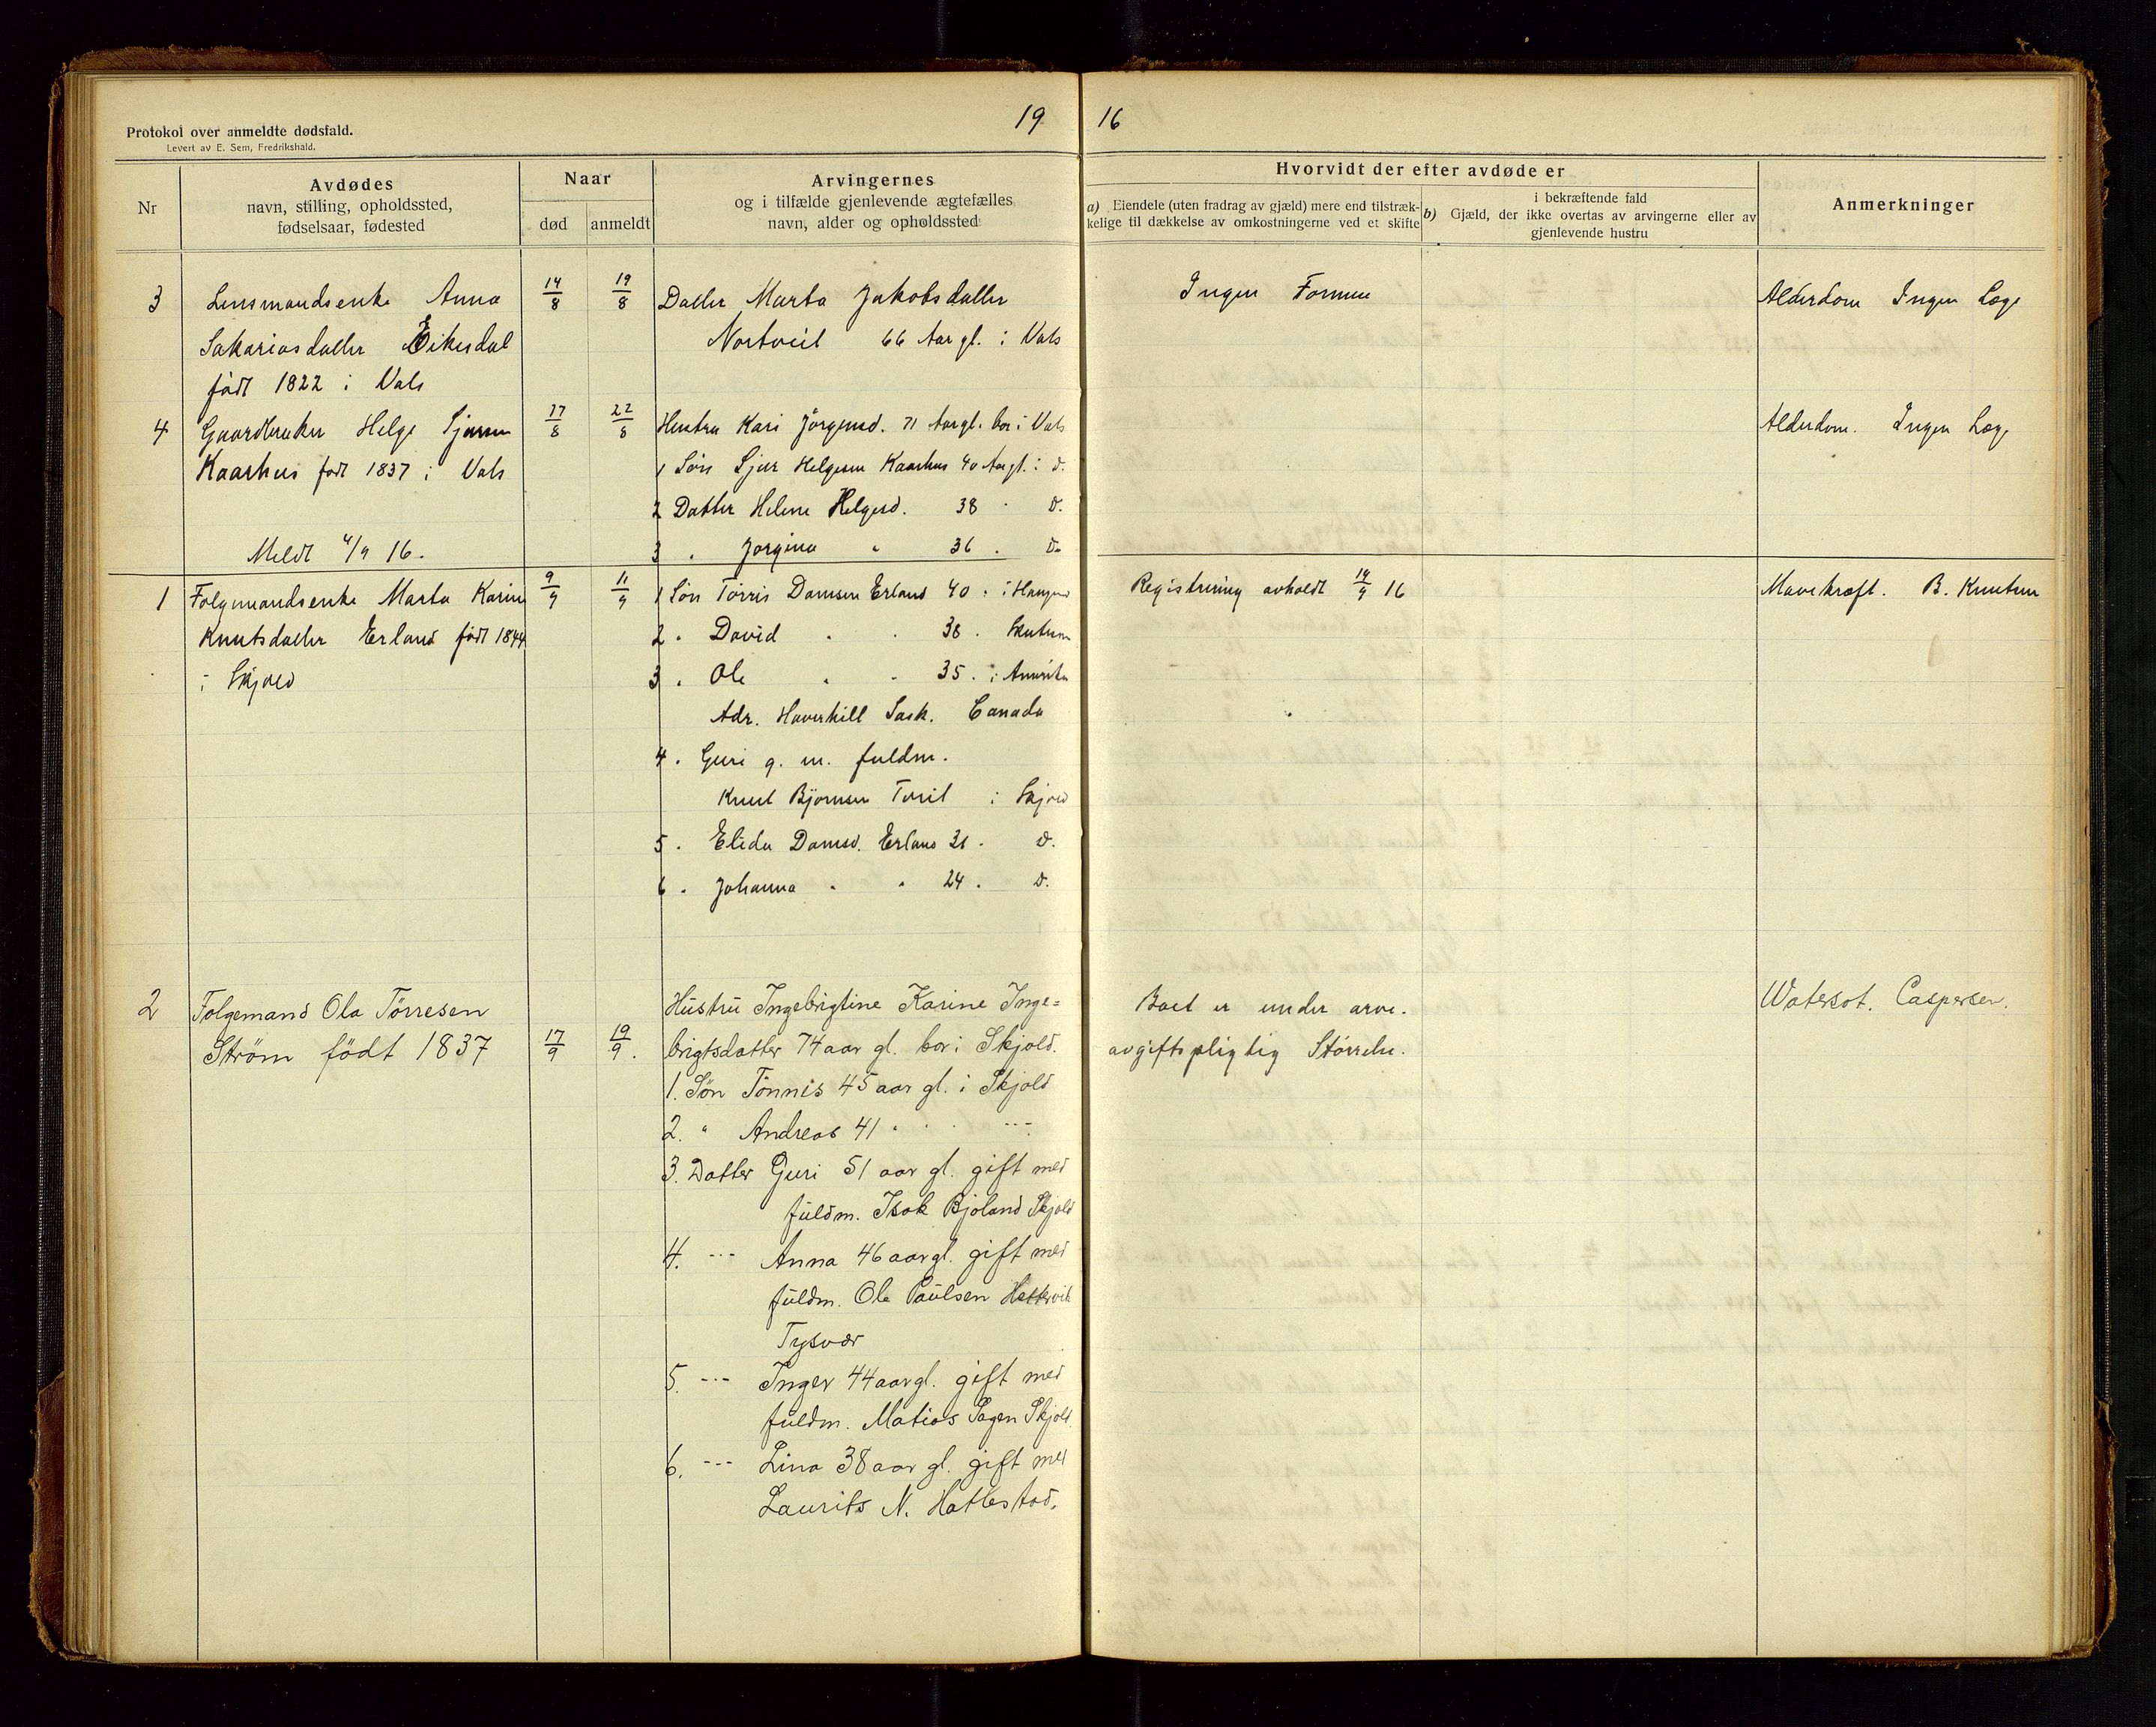 19 16
Protokol over anmeldte dødsfald.
Levert av E. Sem, Fredrikshald.
Nr
Avdødes
navn, stilling, opholdssted,
fødselsaar, fødested
Naar
død
anmeldt
Arvingernes
og i tilfælde gjenlevende ægtefælles
navn, alder og opholdssted
Hvorvidt der efter avdøde er
a) Eiendele (uten fradrag av gjæld) mere end tilstræk-
kelige til dækkelse av omkostningerne ved et skifte
i bekræftende fald
b) Gjæld, der ikke overtas av arvingerne eller av
gjenlevende hustru
Anmerkninger
3 Lensmandsenke Anna 14/8 19/8 Datter Marta Jakobsdatter Ingen Formue Alderdom Ingen Læge
Sakariasdatter Eikesdal 66 Aar gl. i Vats
født 1822 i Vats
4 Gaardbruker Helge Sjursen 17/8 22/8 Hustru Kari Jørgensd. 71 Aar gl. bor i Vats Alderdom. Ingen Læge
Kaarhus født 1837 i Vats 1 Søn Sjur Helgesen Kaarhus 40 Aar gl. i d.
2 Datter Helene Helgesd. 38 " d.
Meldt 4/9 16. 3 " Jorgina " 36 . d.
1 Folgemandsenke Marta Karine 9/9 11/9 1 Søn Tørris Damsen Erland 40 " i Registrering avholdt 14/9 16 Mavekræft. B. Knutsen
Knutsdatter Erland født 1844 2 " David " " 38 .
i Skjold 3 " Ole " " 35 . i Amerika
Adr. Haverhill Sask. Canada
4 . Guri g. m. fuldm.
Knut Bjørnsen i Skjold
5 . Elida Damsd. Erland 31 . d.
6 . Johanna " " 24 . d.
2 Folgemand Ola Tørresen Hustru Ingebrigtine Karine Inge= Boet er under arve. Watersot. Caspersen.
Strøm født 1837 17/9 19/9. brigtsdatter 74 aar gl. bor i Skjold. avgiftspligtig Størrelse.
1. Søn Tønnis 45 aar gl. i Skjold
2. " Andreas 41 " " " ---
3. Datter Guri 51 aar gl. gift med
fuldm. Isak Bjoland Skjold
4. --- Anna 46 aar gl. gift med
fuldm. Ole Paulsen Hettervik
Tysvær
5. --- Inger 44 aar gl. gift med
fuldm. Matias Sagen Skjold.
6. --- Lina 38 aar gl. gift med
Laurits N. Hattestad.